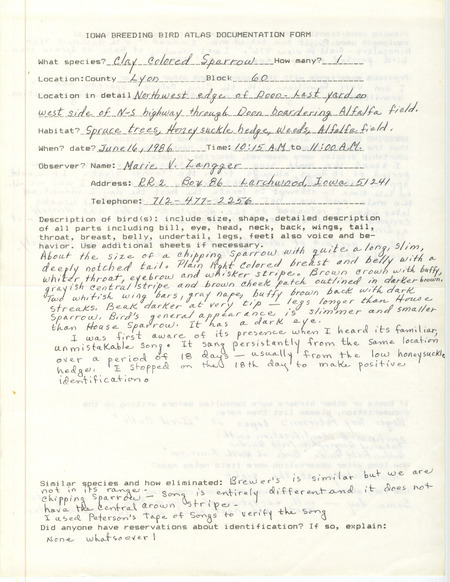 IOWA BREEDING BIRD ATLAS DOCUMENTATION FORM
What species? Clay Colored Sparrow How many? 1
Location: County Lyon Block 60
Location in detail Northwest edge of Doon - Last yard on
west side of N-S highway through Doon boardering Alfalfa field.
Habitat? Spruce trees, Honeysuckle hedge, weeds, Alfalfa field.
When? date? June 16, 1986 Time: 10:15 A.M. to 11:00 A.M.
Observer? Name: Marie V. Zangger
Address: RR2 Box 86 Larchwood, Iowa 51241
Telephone: 712-477-2256
Description of bird(s): include size, shape, detailed description
of all parts including bill, eye, head, neck, back, wings, tail,
throat, breast, belly, undertail, legs, feet; also voice and be-
havior. Use additional sheets if necessary.
About the size of a chipping sparrow with quite a long, slim,
deeply notched tail. Plain light colored breast and belly with a
white throat, eyebrow and whisker stripe. Brown crown with buffy,
grayish central stripe and brown cheek patch outlined in darker brown.
Two whitish wing bars, gray nape, buffy brown back with dark
streaks. Beak darker at very tip - legs longer than House
Sparrow. Bird's general appearance is slimmer and smaller
than House Sparrow. It has a dark eye.
I was first aware of its presence when I heard its familiar,
unmistakable song. It sang persistantly from the same location
over a period of 18 days - usually from the low honeysuckle
hedge. I stopped on the 18th day to make positive
identification.
Similar species and how eliminated: Brewer's is similar but we are
not in its range.
Chipping Sparrow - song is entirely different and it does not
have the central crown stripe.
I used Peterson's Tape of Songs to verify the song
Did anyone have reservations about identification? If so, explain:
None whatsoever!